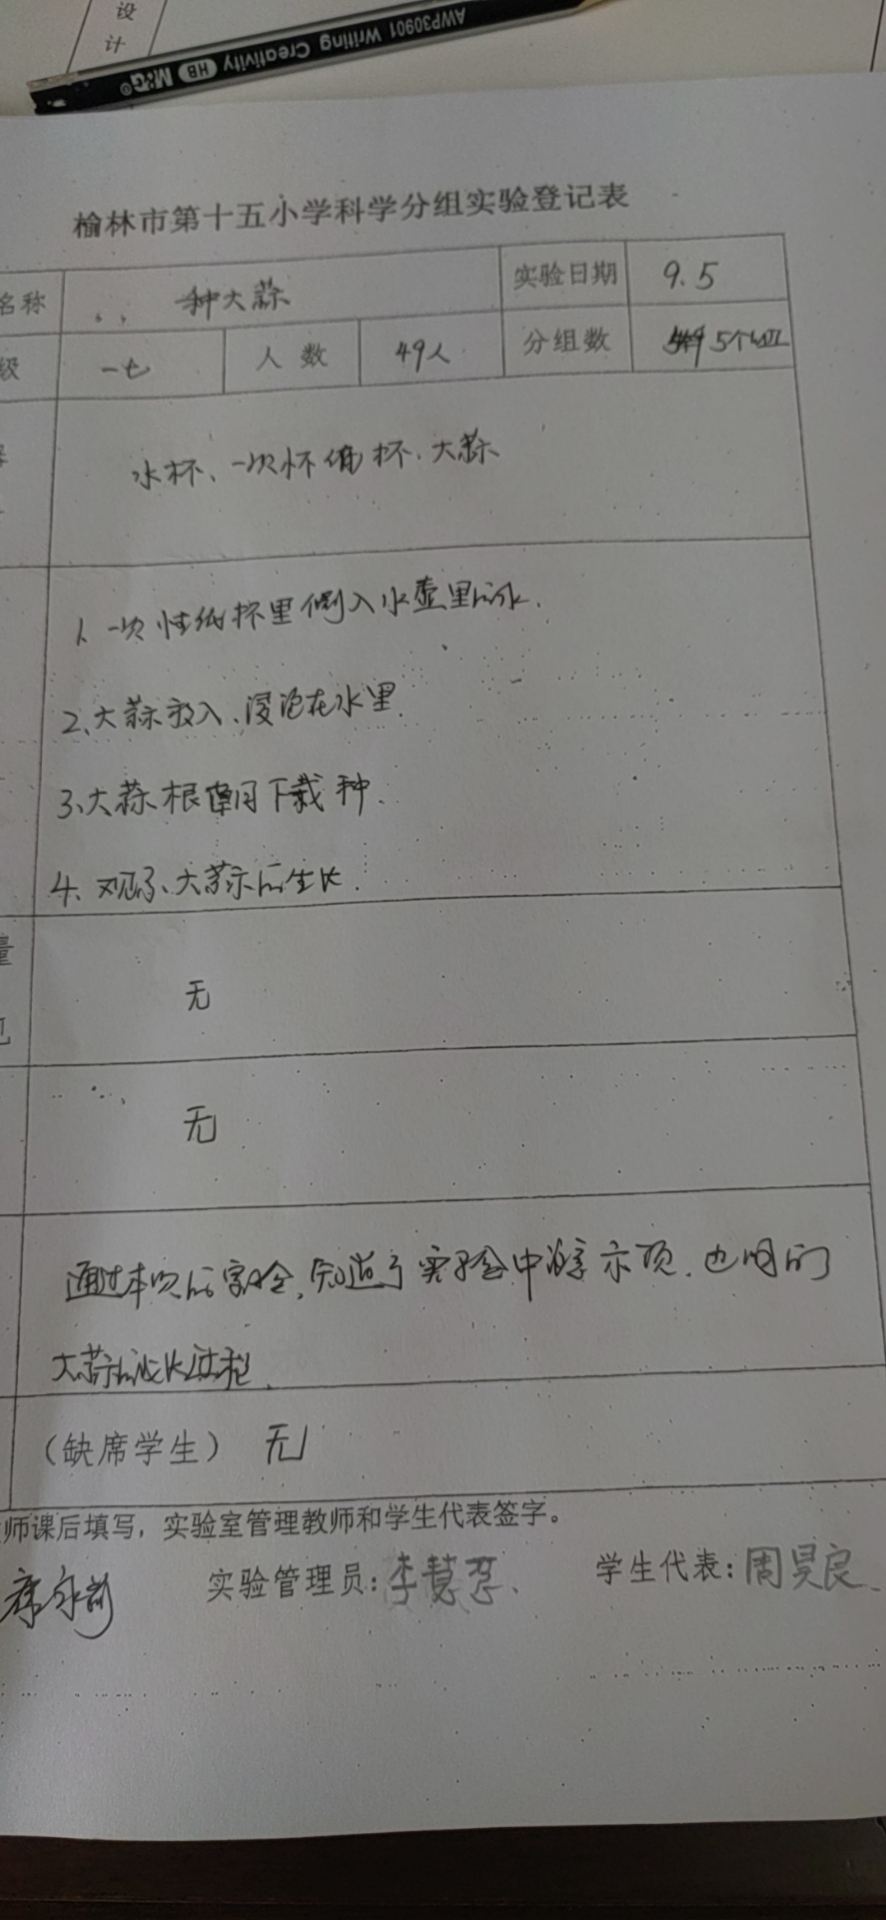 设
计
AWP30901 Writing Creativity HB M&G
榆林市第十五小学科学分组实验登记表
名称 种大蒜 实验日期 9.5
级 一七 人数 49人 分组数 5个组
水杯、一次杯 杯、大蒜
1、一次性纸杯里倒入水壶里的水.
2、大蒜放入、浸泡在水里.
3、大蒜根朝下栽种.
4、观察、大蒜的生长.
量 无
无
通过本次的实验,知道了实验中注意事项.也明白了
大蒜的成长过程.
(缺席学生) 无
师课后填写,实验室管理教师和学生代表签字。
实验管理员:李慧 学生代表:周昊良